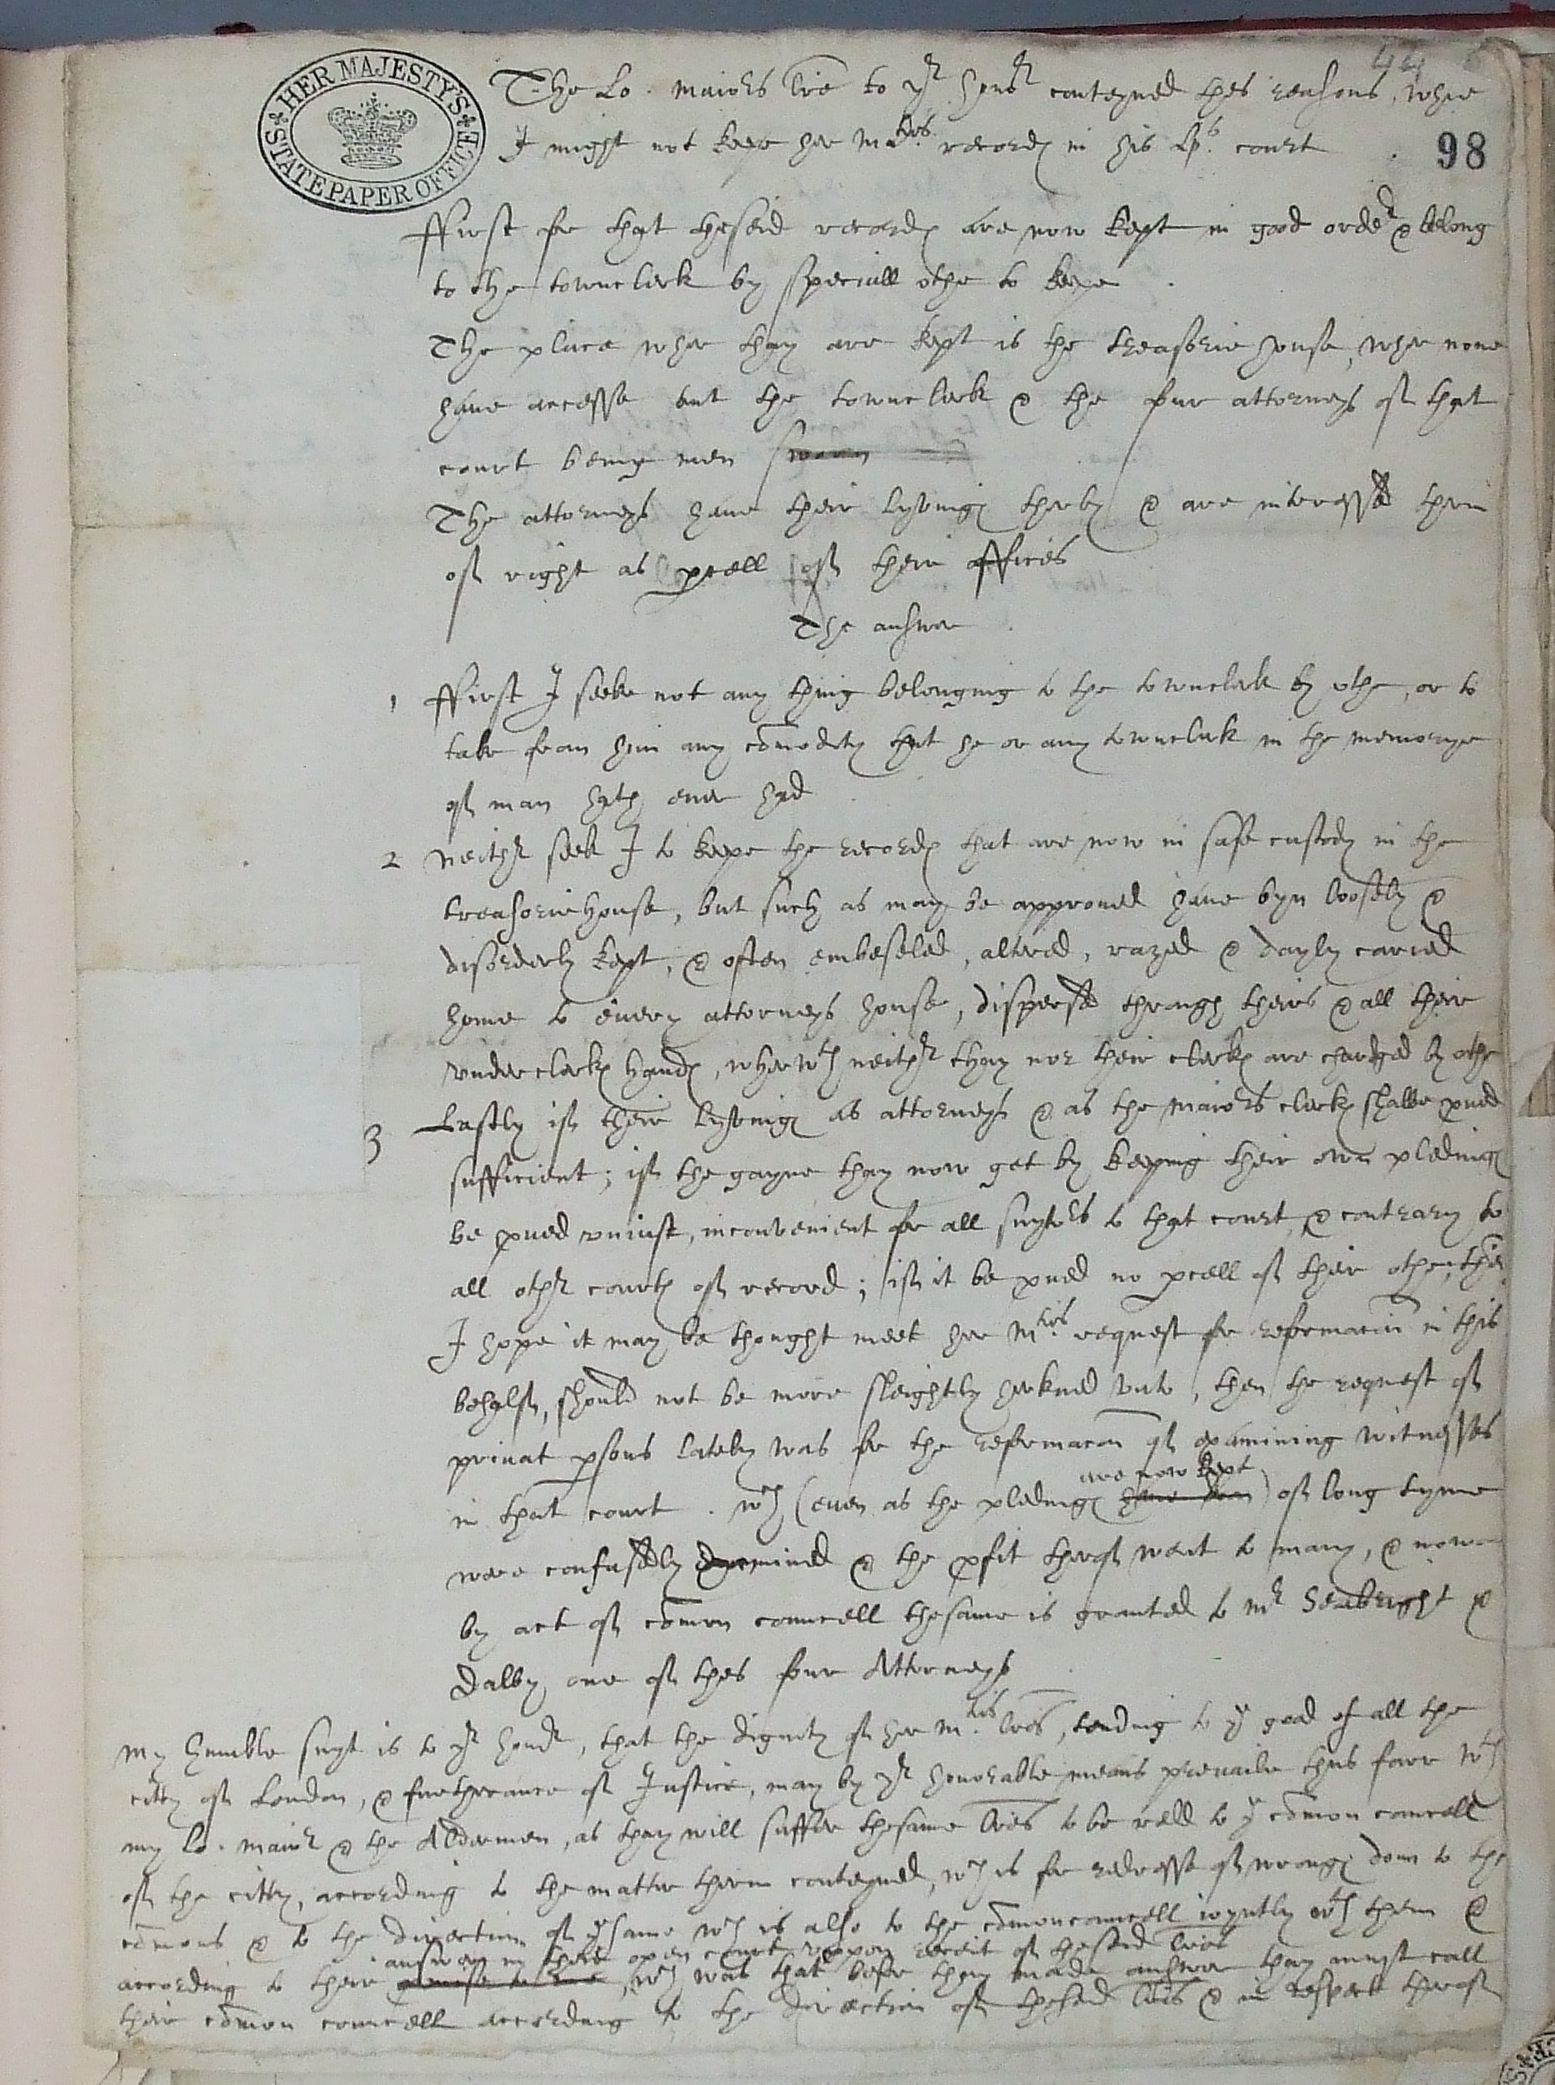 44
HER MAJESTY'S STATE PAPER OFFICE
98
The Lo. maiors lre to yr honr conteyned thes reasons, whie
I might not keepe her Maties records in his Lps. court
ffirst for that thesaid records are now kept in good order & belong
to the townclerk by speciall othe to keepe.
The place wher thay are kept is the treasorie house, wher none
have accesse but the townclerk & the four attorneys of that
court being men sworn
The attorneys have their lyvings therby & are interessed therin
of right as pcell of their offices
The answer.
1 ffirst I seeke not any thing belonging to the townclerk by othe, or to
take from him any comodity that he or any townclerk in the memorye
of man hath ever had
2 neithr seek I to keepe the records that are now in safe custody in the
treasoriehouse, but such as may be approued haue byn loosely &
disorderly kept, & often embeseled, altered, razed & dayly caried
home to euery attorneys house, dispersed through theirs & all their
vnderclerks hands, wherwth neithr thay nor their clerks are chardged by othe
3 Lastly if their lyvings as attorneys & as the maiors clerks shalbe pued
sufficient; if the gayne thay now get by keeping their own pleadings
be pued vniust, inconvenient for all suytors to that court, & contrary to
all othr courts of record; if it be pued no pcell of their othe, then
I hope it may be thought meet her Mties request for reformacion in this
behalf, should not be more sleightly herkned vnto, then the request of
privat psons lately was for the reformacon of examining witnesses
are now kept
in that court. wch (euen as the pleadings haue been) of long tyme
were confusedly examined & the pfit therof went to many, & now
by act of comon councell thesame is granted to mr Seabright &
Dalby one of thes four Attorneys
My humble suyt is to yr honor, that the dignity of her Mties lres, tending to ye good of all the
citty of London, & furtherance of Justice, may by yr honorable means prevaile thus farr wth
my Lo. maior & the Aldermen, as thay will suffer thesame lres to be redd to ye comon councell
of the citty, according to the matter therin conteyned, wch is for redresse of wrongs don to the
comons & to the direction of ye same wch is also to the comoncouncell ioyntly wth them &
answer in their open court vppon receit of thesaid lres
according to their, wch was that befor thay made answer thay must call
their comon councell according to the direction of thesaid lres & in respect therof